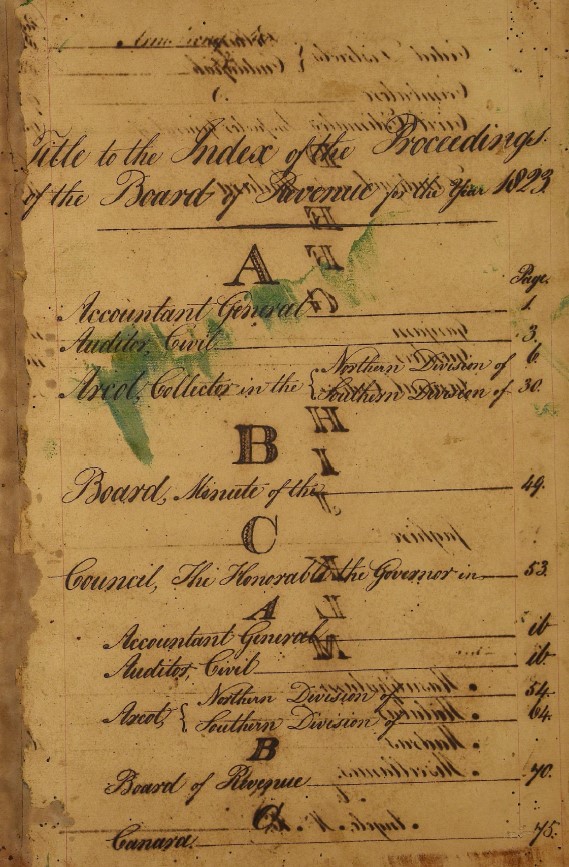 Title to the Index of the Proceedings
of the Board of Revenue for the Year 1823
A
Page.
Accountant General 1.
Auditor, Civil 3.
Arcot, Collector in the { Northern Division of 6.
Southern Division of 30.
B
Board, Minute of the 49.
C
Council, The Honorable the Governor in 53.
A
Accountant General ib
Auditor, Civil ib.
Arcot, { Northern Division of 54.
Southern Division of 64.
B
Board of Revenue 70.
C
Canara. 75.